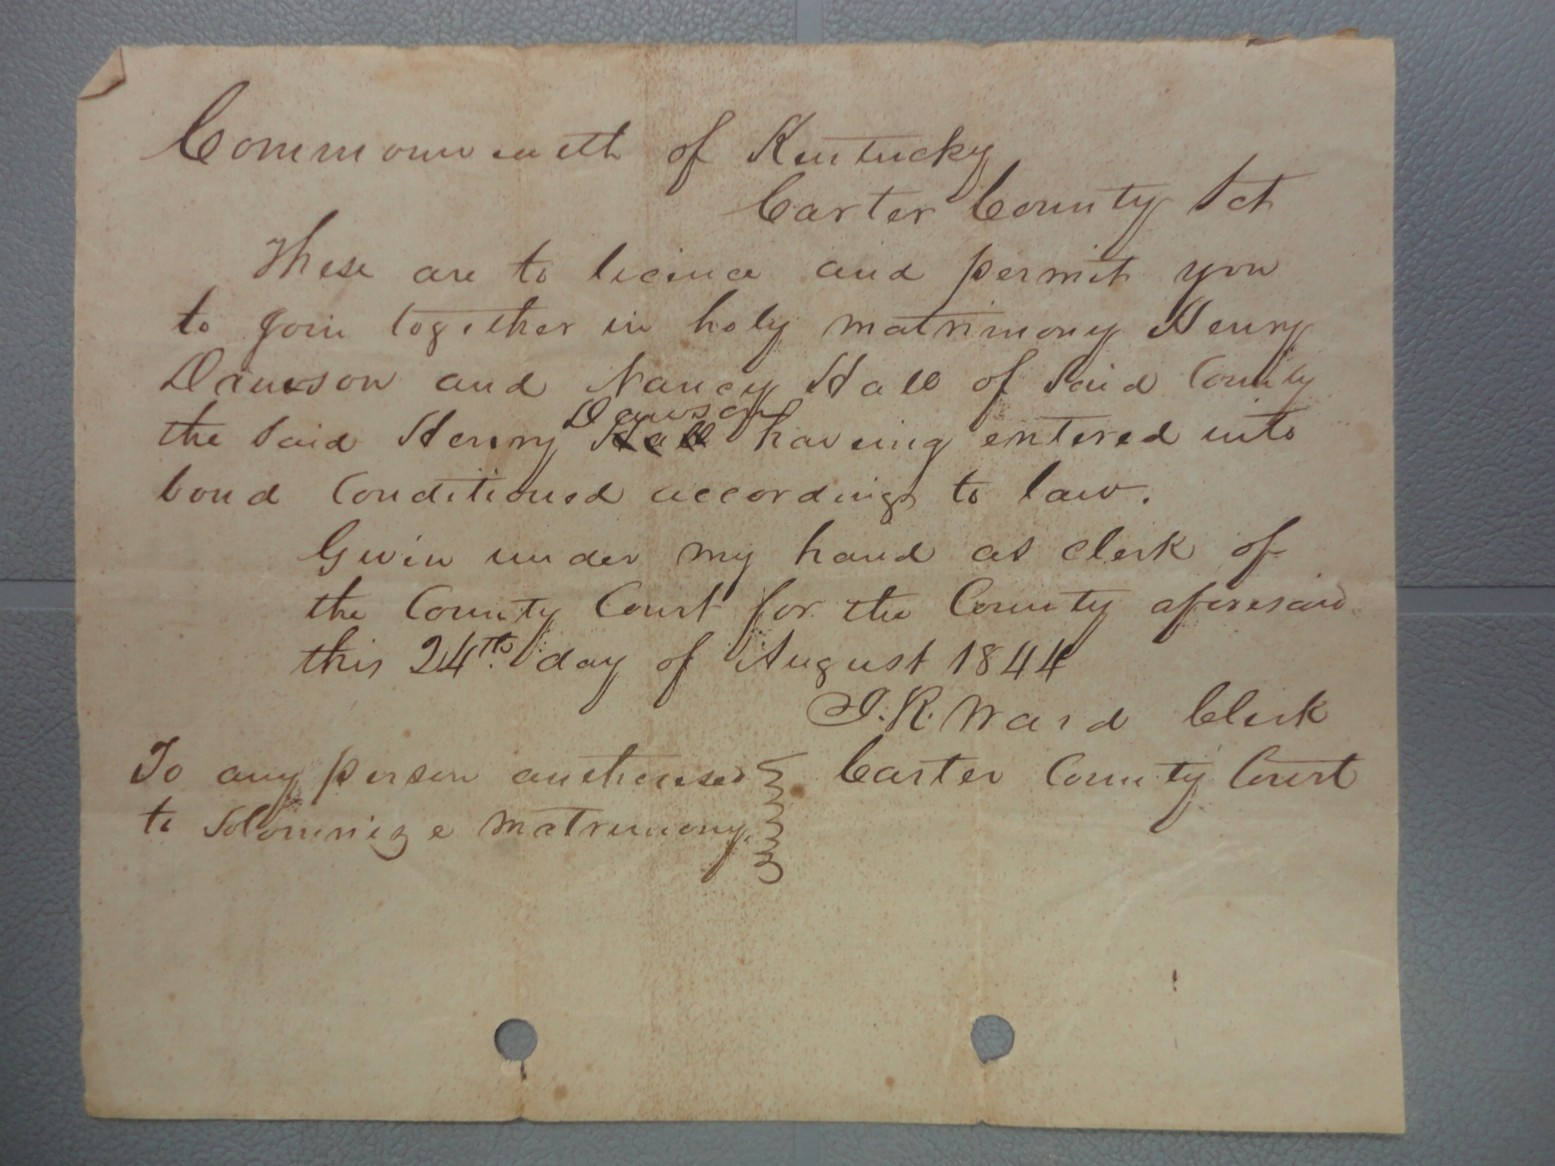 Commonwealth of Kentucky
Carter County Sct
These are to licence and permit you
to join together in holy matrimony Henry
Dawson and Nancy Hall of Said County
the Said Henry Hall Dawson having entered into
bond Conditioned according to law.
Given under my hand as clerk of
the County Court for the County aforesaid
this 24th day of August 1844
J. R. Ward Clerk
Carter County Court
To any person authorised
to Solomnize matrimony.